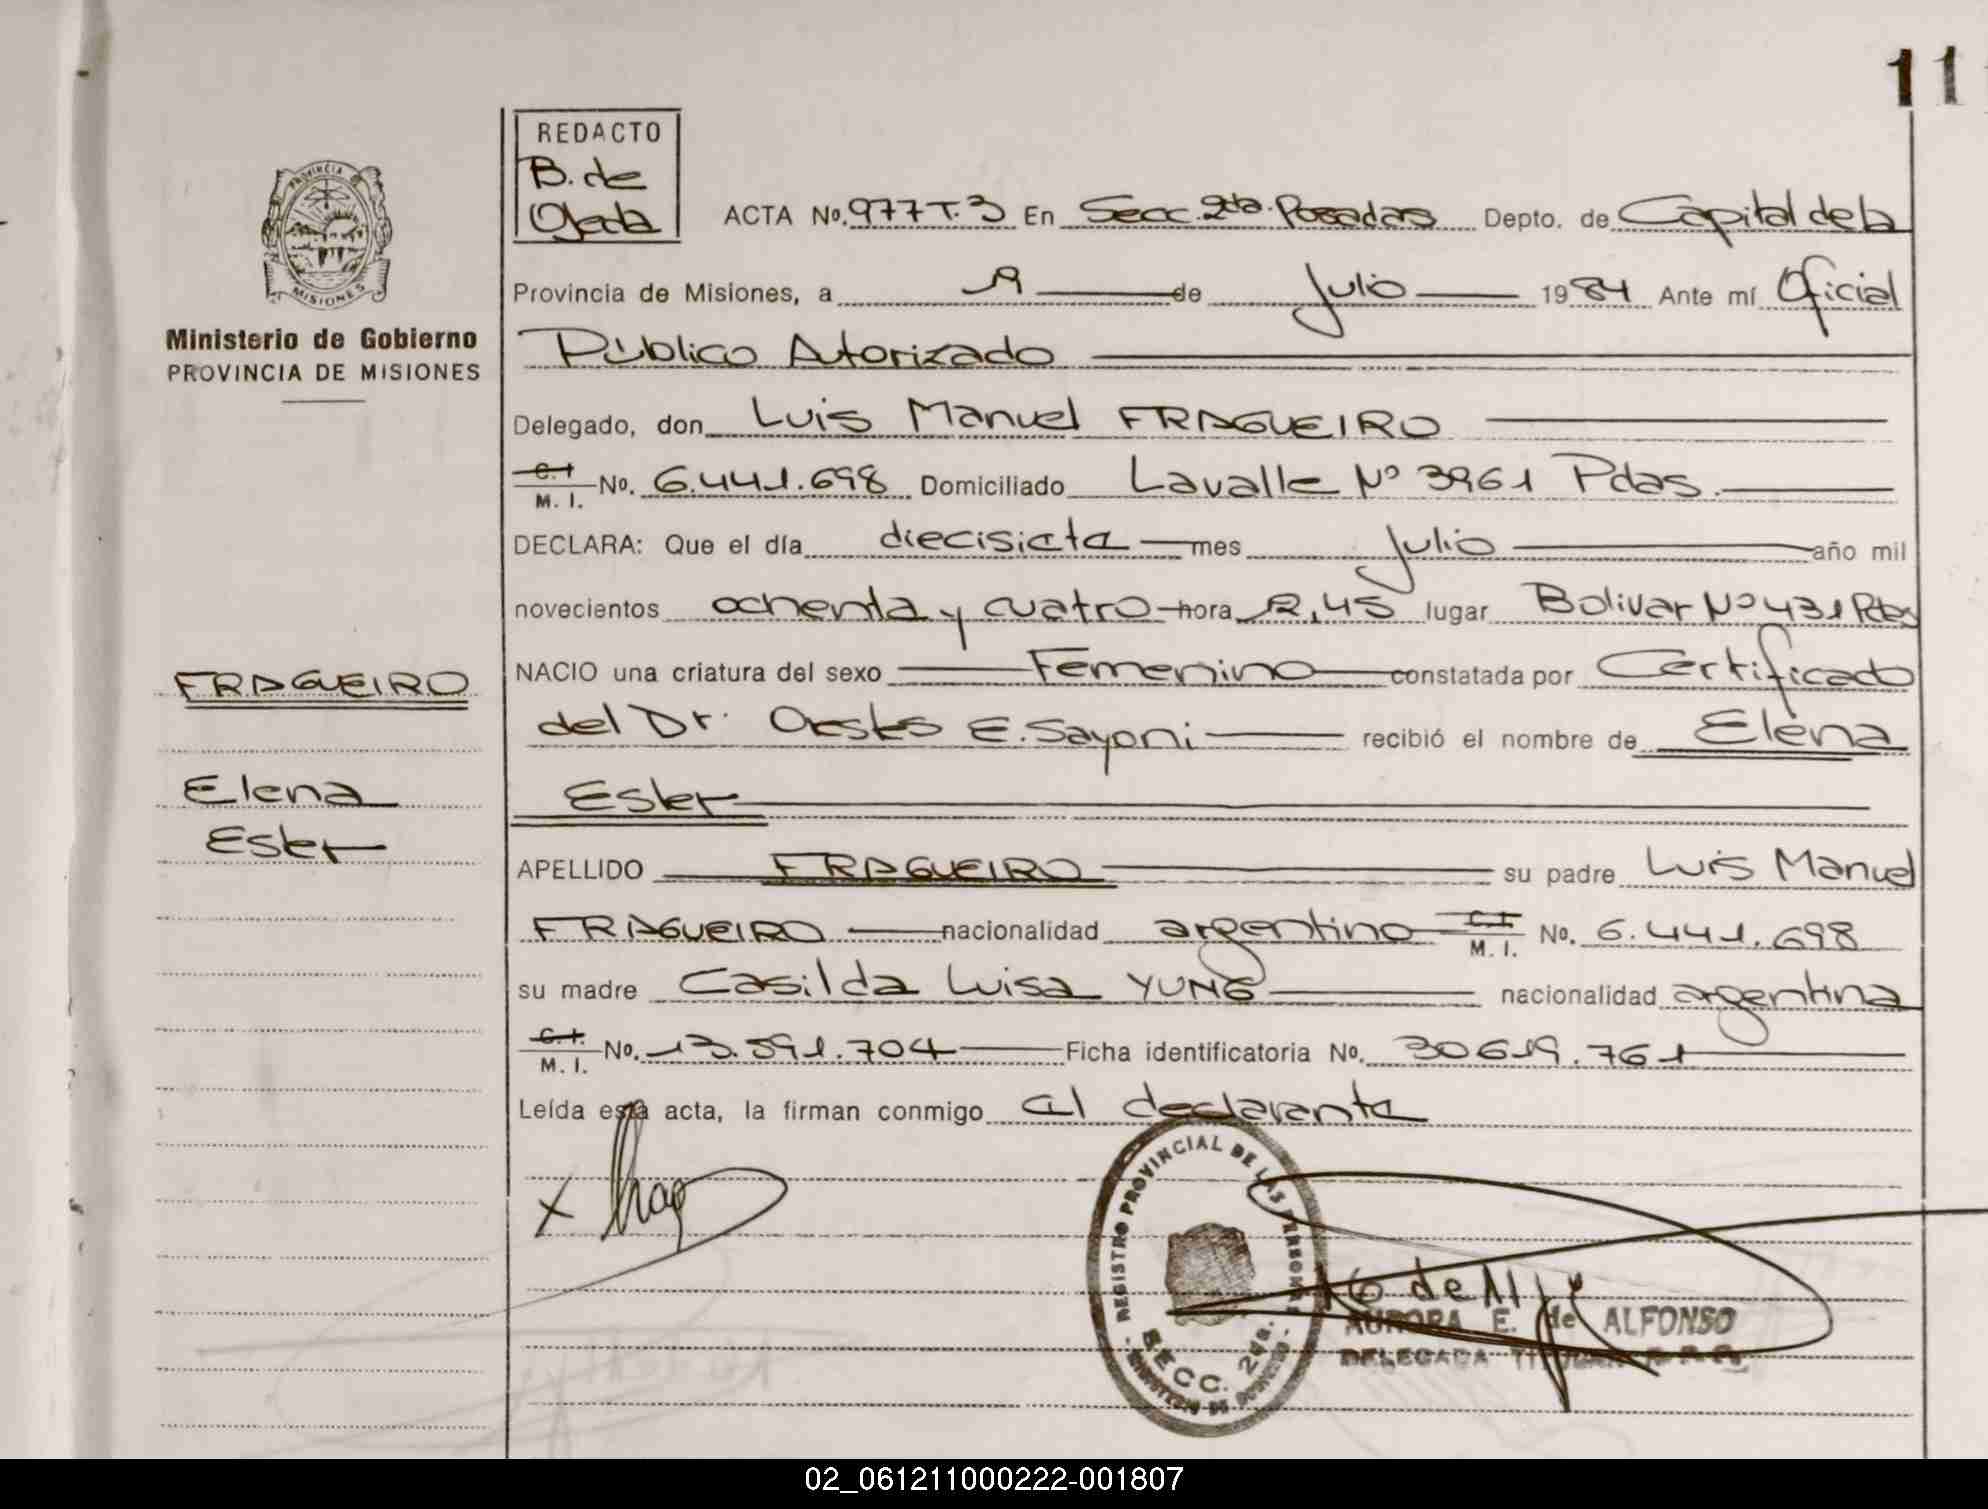 11
REDACTO
B. de
Ojeda
PROVINCIA DE
MISIONES
Ministerio de Gobierno
PROVINCIA DE MISIONES
ACTA No. 977 T. 3 En Secc. 2da. Posadas Depto. de Capital de la
Provincia de Misiones, a de Julio 1984 Ante mí Oficial
Público Autorizado
Delegado, don Luis Manuel FRAGUEIRO
C. I. M. I. No. 6.441.698 Domiciliado Lavalle Nº 3961 Pdas.
DECLARA: Que el día diecisiete mes Julio año mil
novecientos ochenta y cuatro hora 2,45 lugar Bolivar Nº 431 Pdas
NACIO una criatura del sexo Femenino constatada por Certificado
del Dr. Orestes E. Sayoni recibió el nombre de Elena
Ester
APELLIDO FRAGUEIRO su padre Luis Manuel
FRAGUEIRO nacionalidad argentino C. I. M. I. No. 6.441.698
su madre Casilda Luisa YUNG nacionalidad argentina
C. I. M. I. No. 13.591.704 Ficha identificatoria No. 30619.761
Leída esta acta, la firman conmigo el declarante
FRAGUEIRO
Elena
Ester
X
REGISTRO PROVINCIAL DE LAS PERSONAS
SECC. 2da.
MINISTERIO DE GOBIERNO
AURORA E. de ALFONSO
DELEGADA TITULAR
02_061211000222-001807